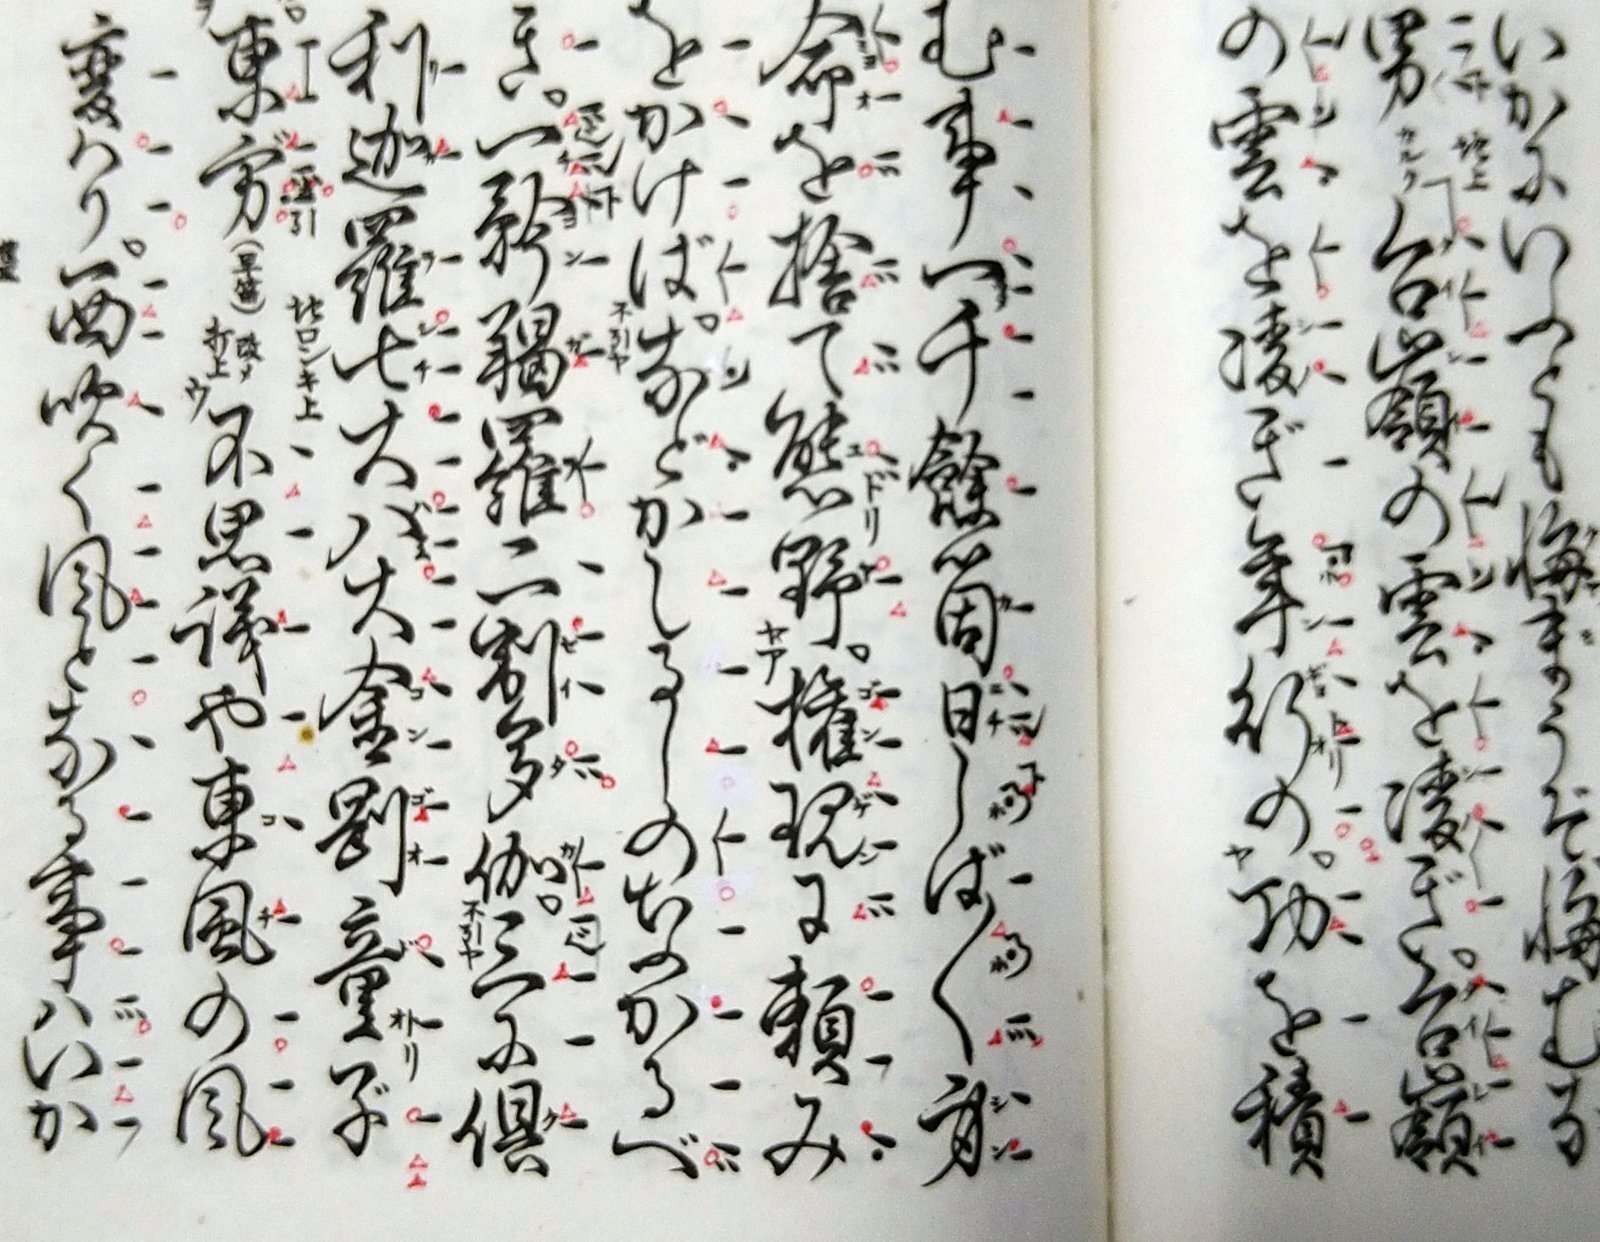 いかにいふとも悔まうぞ悔むな
男 台嶺の雲を凌ぎ。台嶺
の雲を凌ぎ年行の。功を積
む事一千餘箇日しば〳〵身
命を捨て熊野。権現に頼み
をかけば。などかしるしのなかるべ
き。一矜羯羅二制多伽。三に倶
利迦羅七大八大金剛童子
東方(早笛) 不思議や東風の風
変ハり。西吹く風となる事ハいか